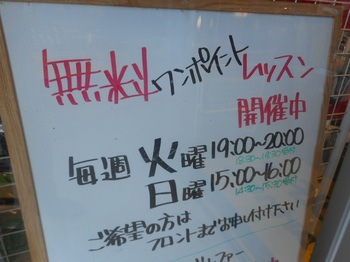 無料ワンポイントレッスン
開催中
毎週 火曜 19:00~20:00
日曜 15:00~16:00
ご希望の方は
フロントまでお申し付け下さい